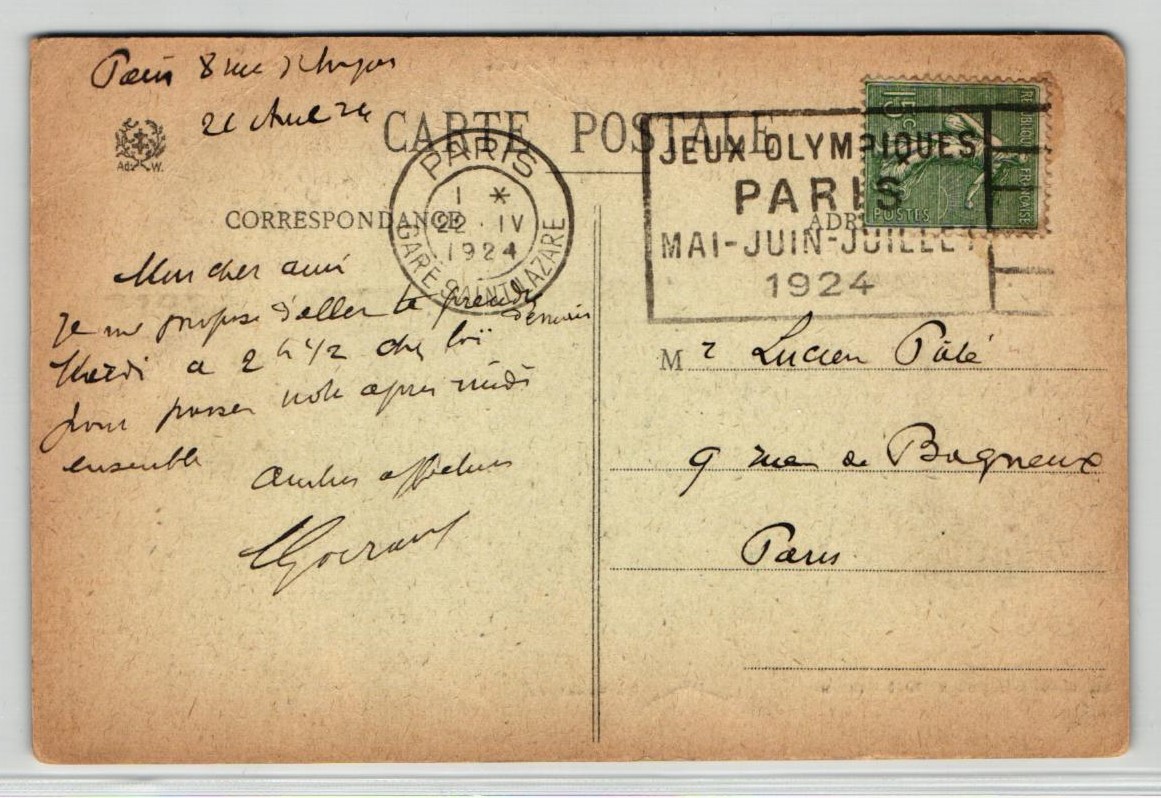 Paris 8 rue
21 Avril 24
CARTE POSTALE
Ad. W.
PARIS
1 *
22 · IV
1924
GARE SAINT LAZARE
JEUX OLYMPIQUES
PARIS
MAI-JUIN-JUILLET
1924
15c
REPUBLIQUE FRANÇAISE
POSTES
CORRESPONDANCE
ADR
Mon cher ami
Je me propose d'aller te prendre
demain
Mardi a 2 h 1/2 chez toi
pour passer notre après midi
ensemble
M r Lucien Pâté
9 rue de Bagneux
Paris